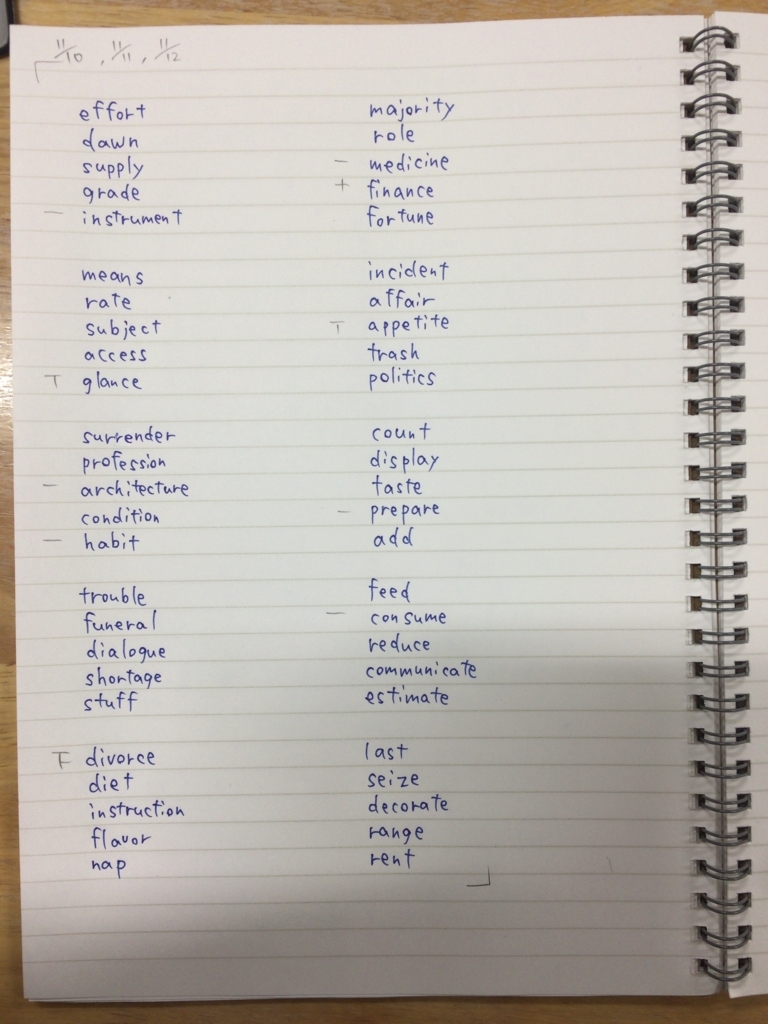 11/10, 11/11, 11/12
effort
dawn
supply
grade
– instrument
means
rate
subject
access
T glance
surrender
profession
– architecture
condition
– habit
trouble
funeral
dialogue
shortage
stuff
F divorce
diet
instruction
flavor
nap
majority
role
– medicine
+ finance
fortune
incident
affair
T appetite
trash
politics
count
display
taste
– prepare
add
feed
– consume
reduce
communicate
estimate
last
seize
decorate
range
rent